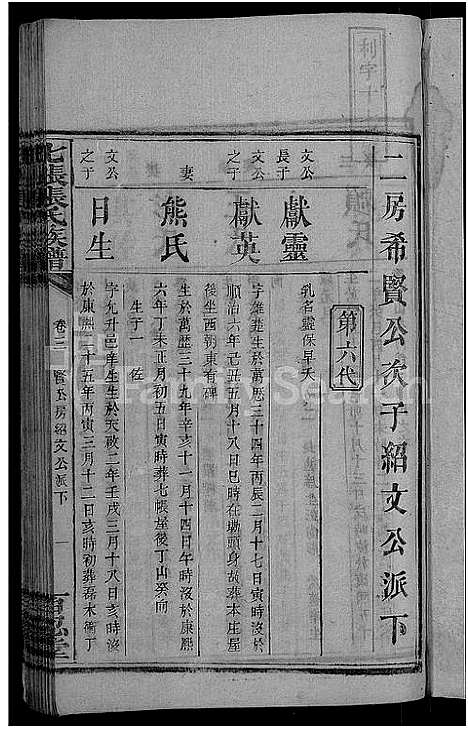 二房希賢公次子紹文公派下
第六代
文公
長子
獻靈
乳名靈保早夭
文公
之子
獻英
字雄楚生於萬曆三十四年丙辰二月十七日寅時沒於
順治六年己丑五月十八日巳時在塅頭身故葬本庄屋
後坐酉朝東有碑
妻
熊氏
生於萬歷三十九年辛亥十一月十四日寅時沒於康熙
六年丁未正月初五日寅時葬七帳屋後丁山癸向
生子一 佐
文公
之子
日生
字允升邑庠生生於天啟二年壬戌三月十八日亥時沒
於康熙二十五年丙寅三月十二日亥時初葬磊木衝丁
七張張氏族譜
卷二
賢公房紹文公派下
一
百忍堂
利字十
FamilySearch